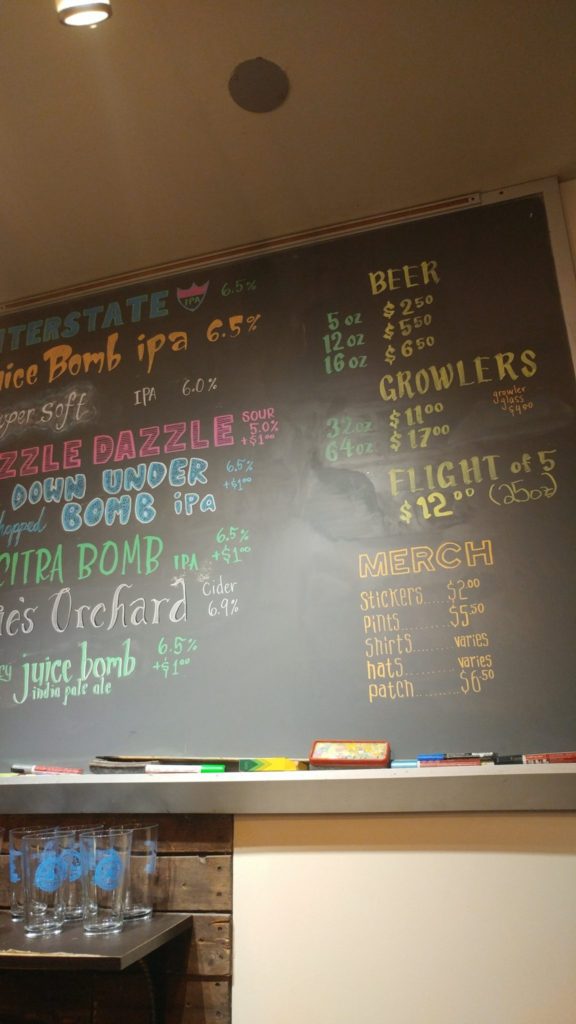 TERSTATE IPA 6.5%
uice Bomb ipa 6.5%
uper soft IPA 6.0%
ZZLE DAZZLE SOUR 5.0% +$1.00
DOWN UNDER 6.5% +$1.00
hopped BOMB iPA
CITRA BOMB IPA 6.5% +$1.00
ie's Orchard Cider 6.9%
cy juice bomb 6.5% +$1.00
india pale ale
BEER
5 oz $2.50
12 oz $5.50
16 oz $6.50
GROWLERS
growler glass $4.00
32oz $11.00
64oz $17.00
FLIGHT of 5
$12.00 (25oz)
MERCH
Stickers.....$2.00
Pints........$5.50
Shirts.......varies
hats.........varies
patch........$6.50